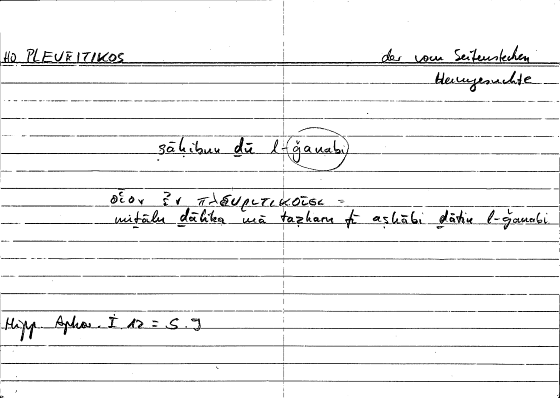 HO PLEURITIKOS
der vom Seitenstechen
Heimgesuchte
ṣāḥibun ḏū l-ǧanabi
οἷον ἐν πλευριτικοῖσι =
miṯālu ḏālika mā taẓharu fī aṣḥābi ḏātin l-ǧanabi
Hipp. Aphor. I 12 = S. 9